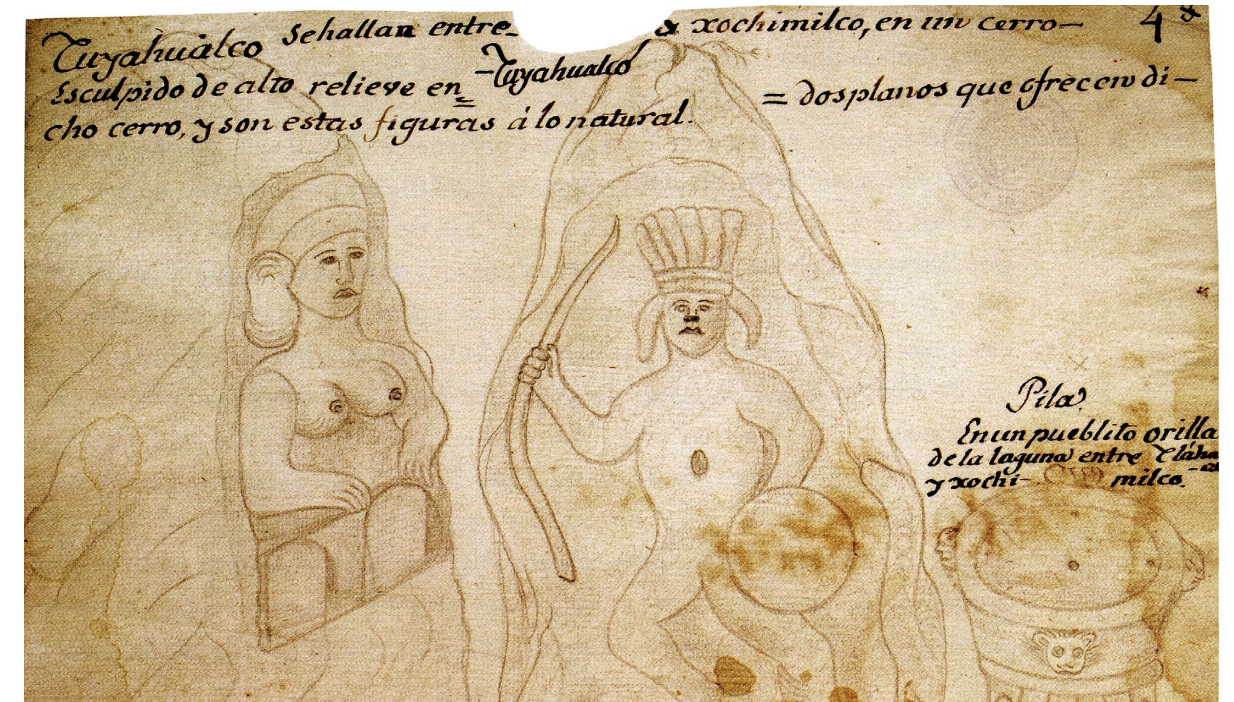 Tuyahualco Sehallan entre & xochimilco, en un cerro—
4ª
Esculpido de alto relieve en = Tuyahualco = dos planos que ofrecen di—
cho cerro, y son estas figuras á lo natural.
Pila
En un pueblito orilla
de la laguna entre
y xochi- milco.